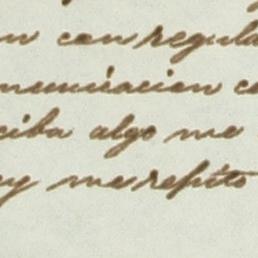 n con regula
nunciacion co
ciba algo me
y me repito